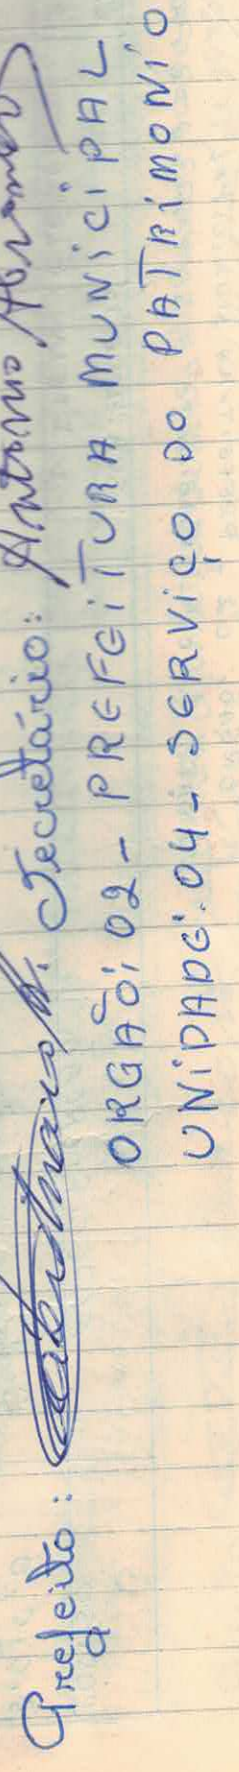 Prefeito: Secretário: Antonio
ORGÃO: 02 - PREFEITURA MUNICIPAL
UNIDADE: 04 - SERVIÇO DO PATRIMONIO